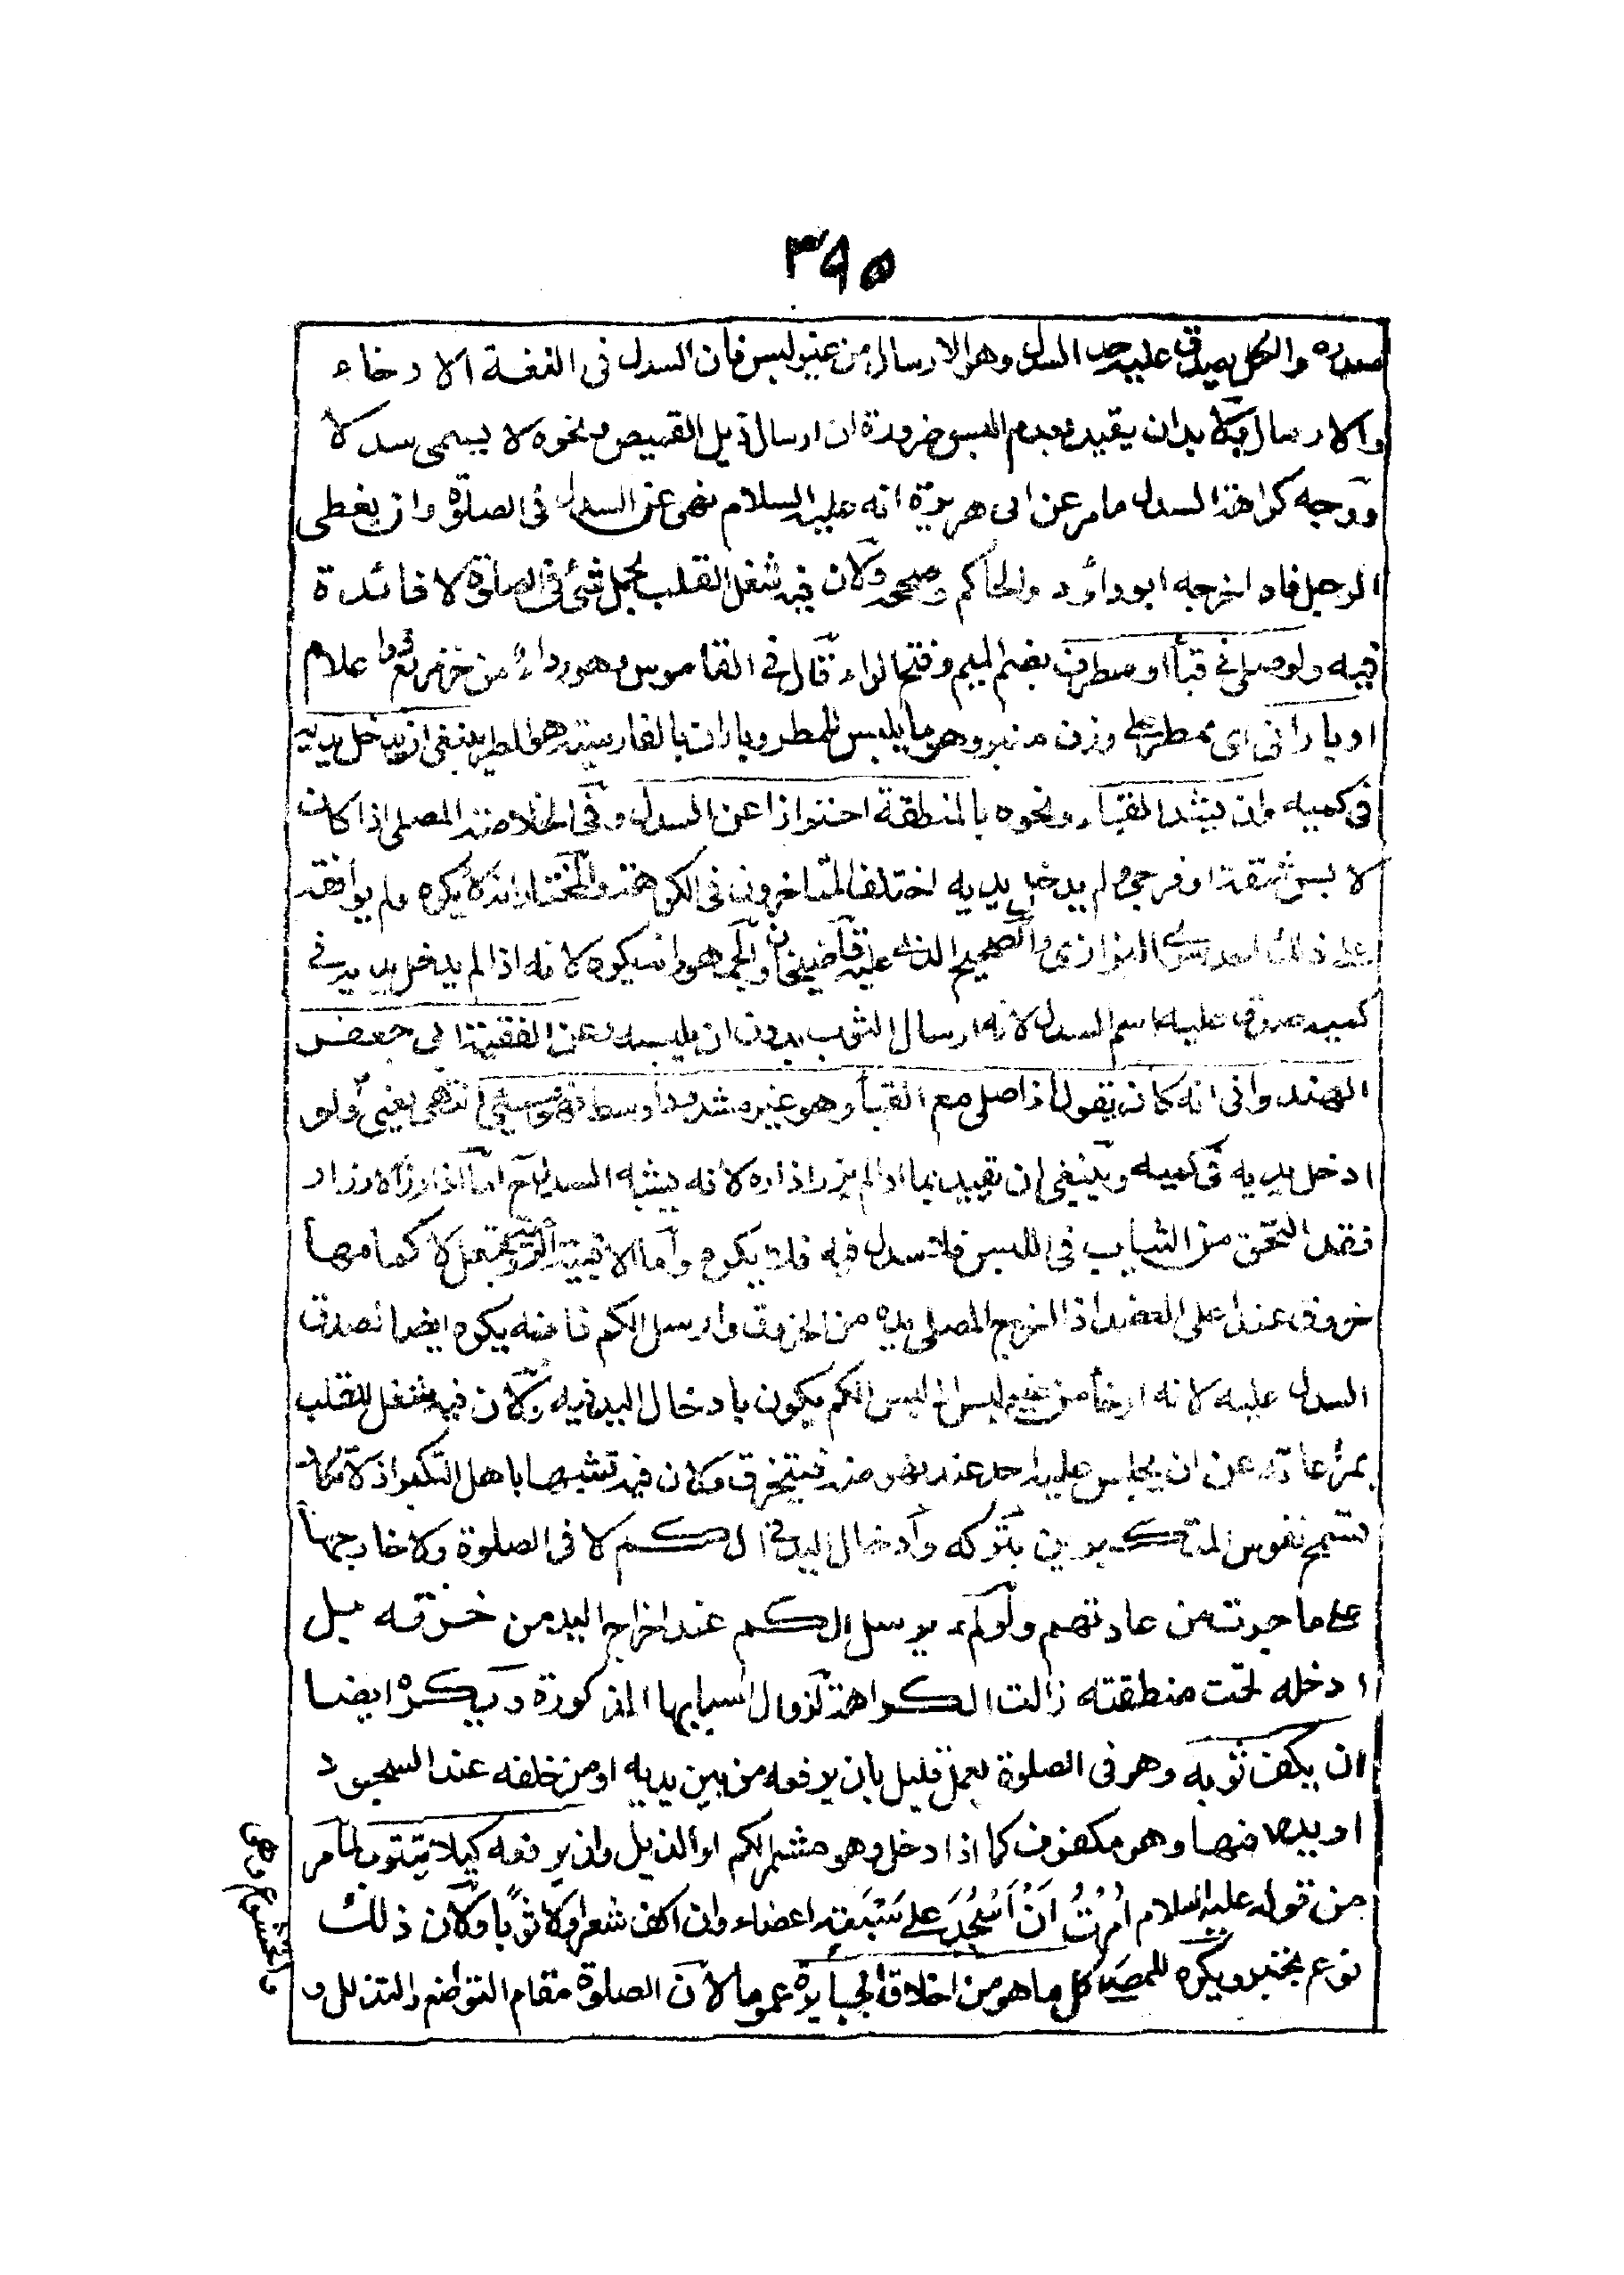 ٣٩٥
صدره والكل يصدق عليه حد السدل وهو الارسال من غير لبس فان السدل فى اللغة الارخاء
والارسال ولا بد ان يقيد بعدم اللبس ضرورة ان ارسال ذيل القميص ونحوه لا يسمى سدلا
ووجه كراهة السدل ما مر عن ابى هريرة انه عليه السلام نهى عن السدل فى الصلوة وان يغطى
الرجل فاه اخرجه ابو داؤد والحاكم وصححه ولان فيه شغل القلب بحمل شئ فى الصلوة لا فائدة
فيه ولو صلى فى قبأ او مطرف بضم الميم وفتح الراء قال فى القاموس وهو رداء من خز مربع ذو اعلام
او بارانى اى ممطر على وزن منبر وهو ما يلبس للمطر وباران بالفارسية هو المطر ينبغى ان يدخل يديه
فى كميه وان يشد القباء ونحوه بالمنطقة احترازا عن السدل وفى الخلاصة المصلى اذا كان
لابس شقة او فرجى ولم يدخل يديه اختلف المتاخرون فى الكراهة والمختار انه لا يكره ولم يوافقه
على ذلك احد سوى البزازى والصحيح الذى عليه قاضيخان والجمهور انه يكره لانه اذا لم يدخل يديه فى
كميه صدق عليه اسم السدل لانه ارسال الثوب بدون ان يلبسه وعن الفقيه ابى جعفر
الهندوانى انه كان يقول اذا صلى مع القبأ وهو غير مشدود الوسط فهو مسيئ انتهى يعنى ولو
ادخل يديه فى كميه وينبغى ان يقيد بما اذا لم يزر ازراره لانه يشبه السدل ح اما اذا زر الازرار
فقد التحق من الثياب فى اللبس فلا سدل فيه فلا يكره واما الاقبية الرومية التى تجعل لاكمامها
خروق عند اعلى العضد اذا اخرج المصلى يده من الخروق وارسل الكم فانه يكره ايضا لصدق
السدل عليه لانه ارخأ من غير لبس اذ لبس الكم يكون بادخال اليد فيه ولان فيه شغل القلب
بمراعاته عن ان يجلس عليه احد عند نهوضه فيتخرق ولان فيه تشبها باهل التكبر اذ لا تكاد
تسمح نفوس المتكبرين بتركه وادخال اليد فى الكم لا فى الصلوة ولا خارجها
على ما جرت من عادتهم ولو لم يرسل الكم عند اخراج اليد من خرقه بل
ادخله تحت منطقته زالت الكراهة لزوال اسبابها المذكورة ويكره ايضا
ان يكف ثوبه وهو فى الصلوة بعمل قليل بان يرفعه من بين يديه او من خلفه عند السجود
او يدخل فيها وهو مكفوف كما اذا دخل وهو مشمر الكم او الذيل وان يرفعه كيلا يتترب لما مر
من قوله عليه السلام اُمِرْتُ اَنْ اَسْجُدَ على سَبْعَة اعضاء وان لا اكف شعرا ولا ثوبًا ولان ذلك
نوع تجبر ويكره للمصلى كل ما هو من اخلاق الجبابرة عموما لان الصلوة مقام التواضع والتذلل و
والخشوع وهى